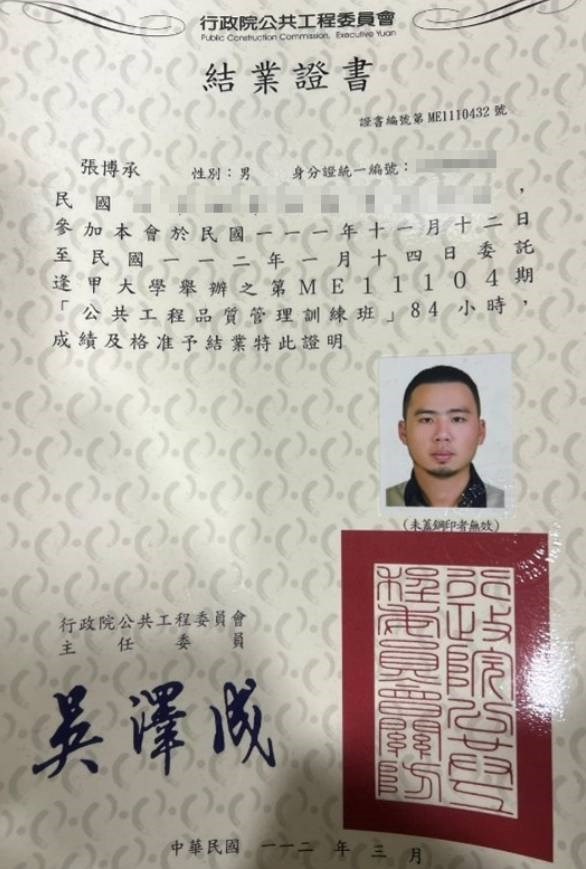 行政院公共工程委員會
Public Construction Commission, Executive Yuan
結業證書
證書編號第 ME1110432 號
張博承 性別：男 身分證統一編號：
民國 ，
參加本會於民國一一一年十一月十二日
至民國一一二年一月十四日委託
逢甲大學舉辦之第ME11104期
「公共工程品質管理訓練班」84小時，
成績及格准予結業特此證明
（未蓋鋼印者無效）
行政院公共工程委員會關防
行政院公共工程委員會
主任委員
吳澤成
中華民國 一一二 年 三 月